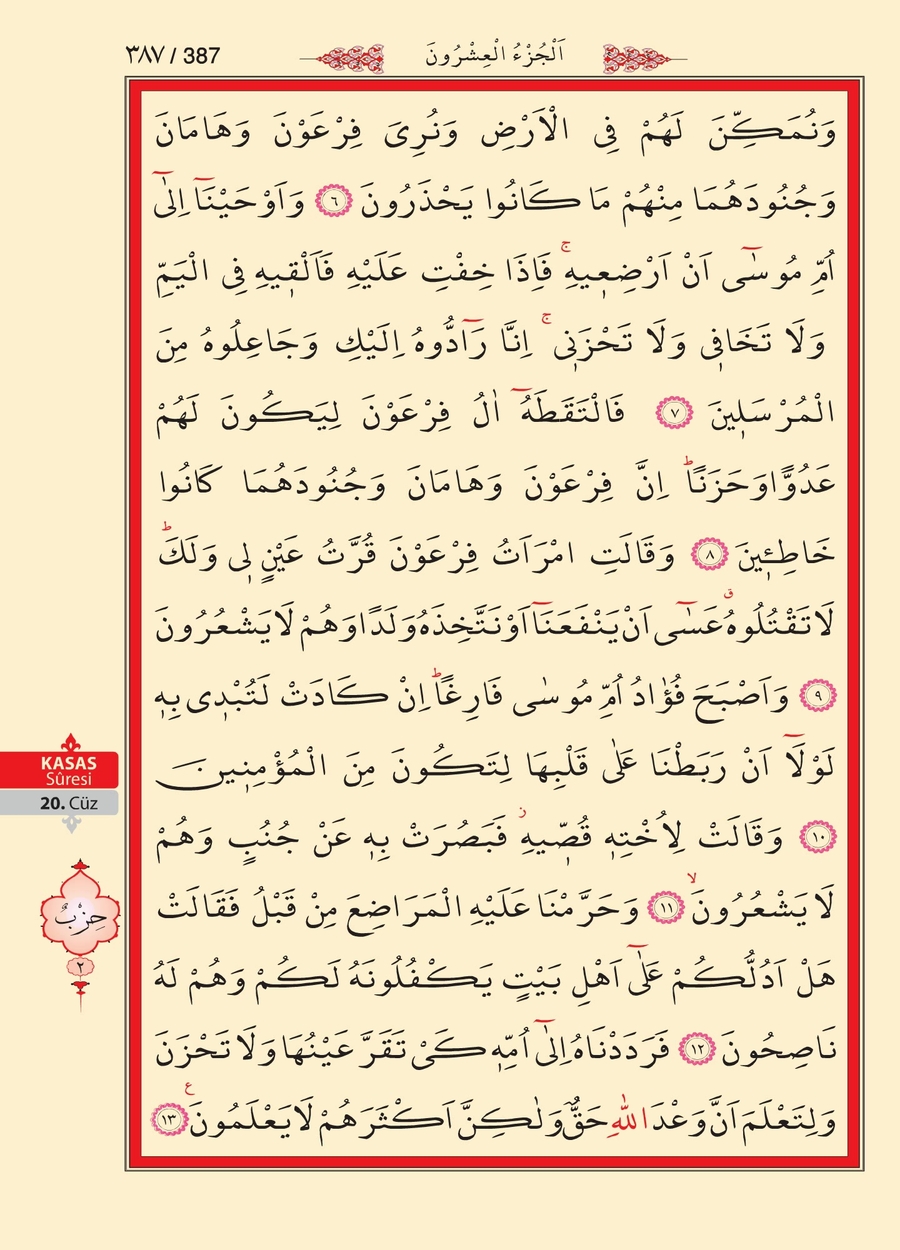 ٣٨٧ / 387
اَلْجُزْءُ الْعِشْرُونَ
وَنُمَكِّنَ لَهُمْ فِي الْاَرْضِ وَنُرِىَ فِرْعَوْنَ وَهَامَانَ
وَجُنُودَهُمَا مِنْهُمْ مَا كَانُوا يَحْذَرُونَ ﴿٦﴾ وَاَوْحَيْنَٓا اِلٰٓى
اُمِّ مُوسٰٓى اَنْ اَرْضِعٖيهِۚ فَاِذَا خِفْتِ عَلَيْهِ فَاَلْقٖيهِ فِي الْيَمِّ
وَلَا تَخَافٖي وَلَا تَحْزَنٖيۚ اِنَّا رَٓادُّوهُ اِلَيْكِ وَجَاعِلُوهُ مِنَ
الْمُرْسَلٖينَ ﴿٧﴾ فَالْتَقَطَهُٓ اٰلُ فِرْعَوْنَ لِيَكُونَ لَهُمْ
عَدُوًّا وَحَزَنًاۜ اِنَّ فِرْعَوْنَ وَهَامَانَ وَجُنُودَهُمَا كَانُوا
خَاطِـٖٔينَ ﴿٨﴾ وَقَالَتِ امْرَاَتُ فِرْعَوْنَ قُرَّتُ عَيْنٍ لٖي وَلَكَۜ
لَا تَقْتُلُوهُۗ عَسٰٓى اَنْ يَنْفَعَنَٓا اَوْ نَتَّخِذَهُ وَلَدًا وَهُمْ لَا يَشْعُرُونَ
﴿٩﴾ وَاَصْبَحَ فُؤٰادُ اُمِّ مُوسٰى فَارِغًاۜ اِنْ كَادَتْ لَتُبْدٖي بِهٖ
لَوْلَٓا اَنْ رَبَطْنَا عَلٰى قَلْبِهَا لِتَكُونَ مِنَ الْمُؤْمِنٖينَ
﴿١٠﴾ وَقَالَتْ لِاُخْتِهٖ قُصّٖيهِؗ فَبَصُرَتْ بِهٖ عَنْ جُنُبٍ وَهُمْ
لَا يَشْعُرُونَۙ ﴿١١﴾ وَحَرَّمْنَا عَلَيْهِ الْمَرَاضِعَ مِنْ قَبْلُ فَقَالَتْ
هَلْ اَدُلُّكُمْ عَلٰٓى اَهْلِ بَيْتٍ يَكْفُلُونَهُ لَكُمْ وَهُمْ لَهُ
نَاصِحُونَ ﴿١٢﴾ فَرَدَدْنَاهُ اِلٰٓى اُمِّهٖ كَىْ تَقَرَّ عَيْنُهَا وَلَا تَحْزَنَ
وَلِتَعْلَمَ اَنَّ وَعْدَ اللّٰهِ حَقٌّ وَلٰكِنَّ اَكْثَرَهُمْ لَا يَعْلَمُونَࣖ ﴿١٣﴾
KASAS
Sûresi
20. Cüz
حِزْبٌ
٢